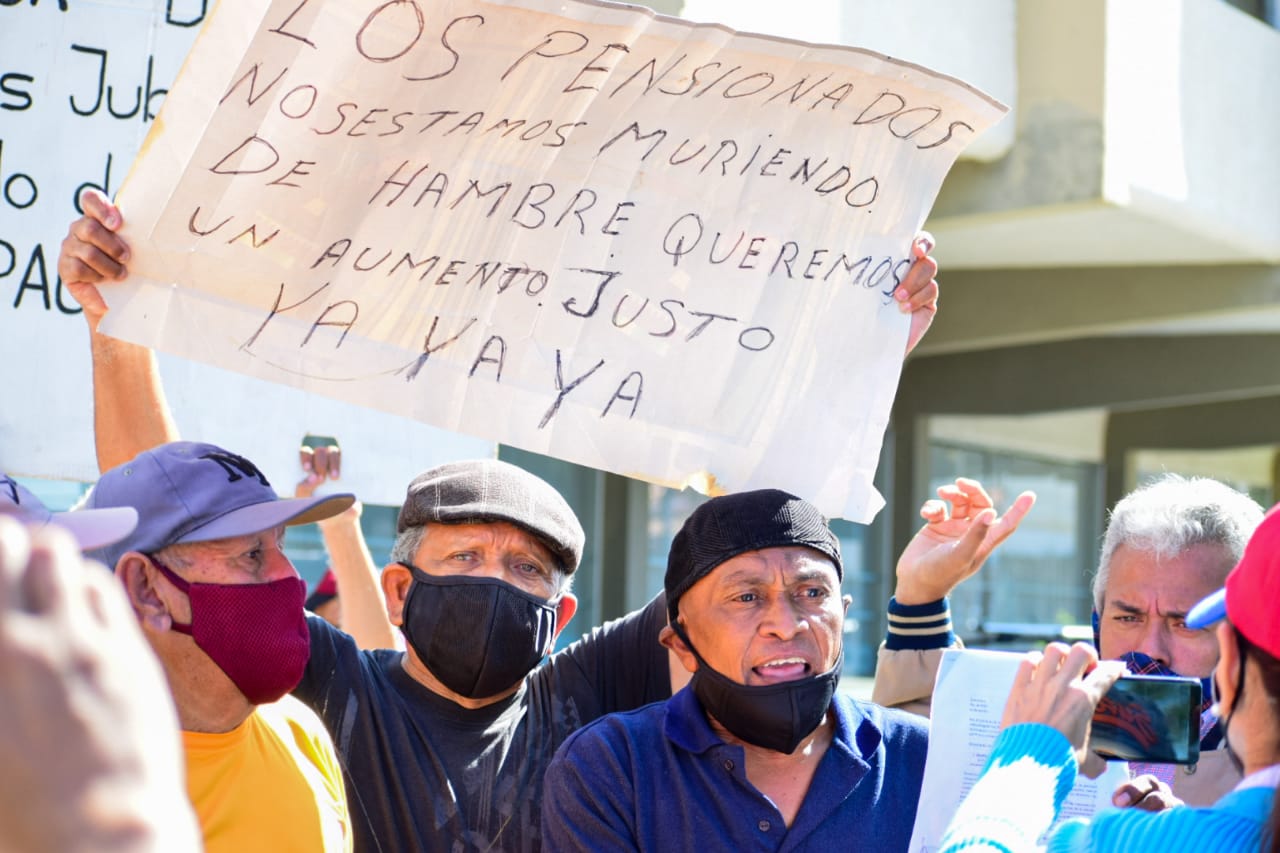 LOS PENSIONADOS
NOSESTAMOS MURIENDO.
DE HAMBRE QUEREMOS,
UN AUMENTO. JUSTO
YA YA YA
D
s Jub
lo d
PAU
M